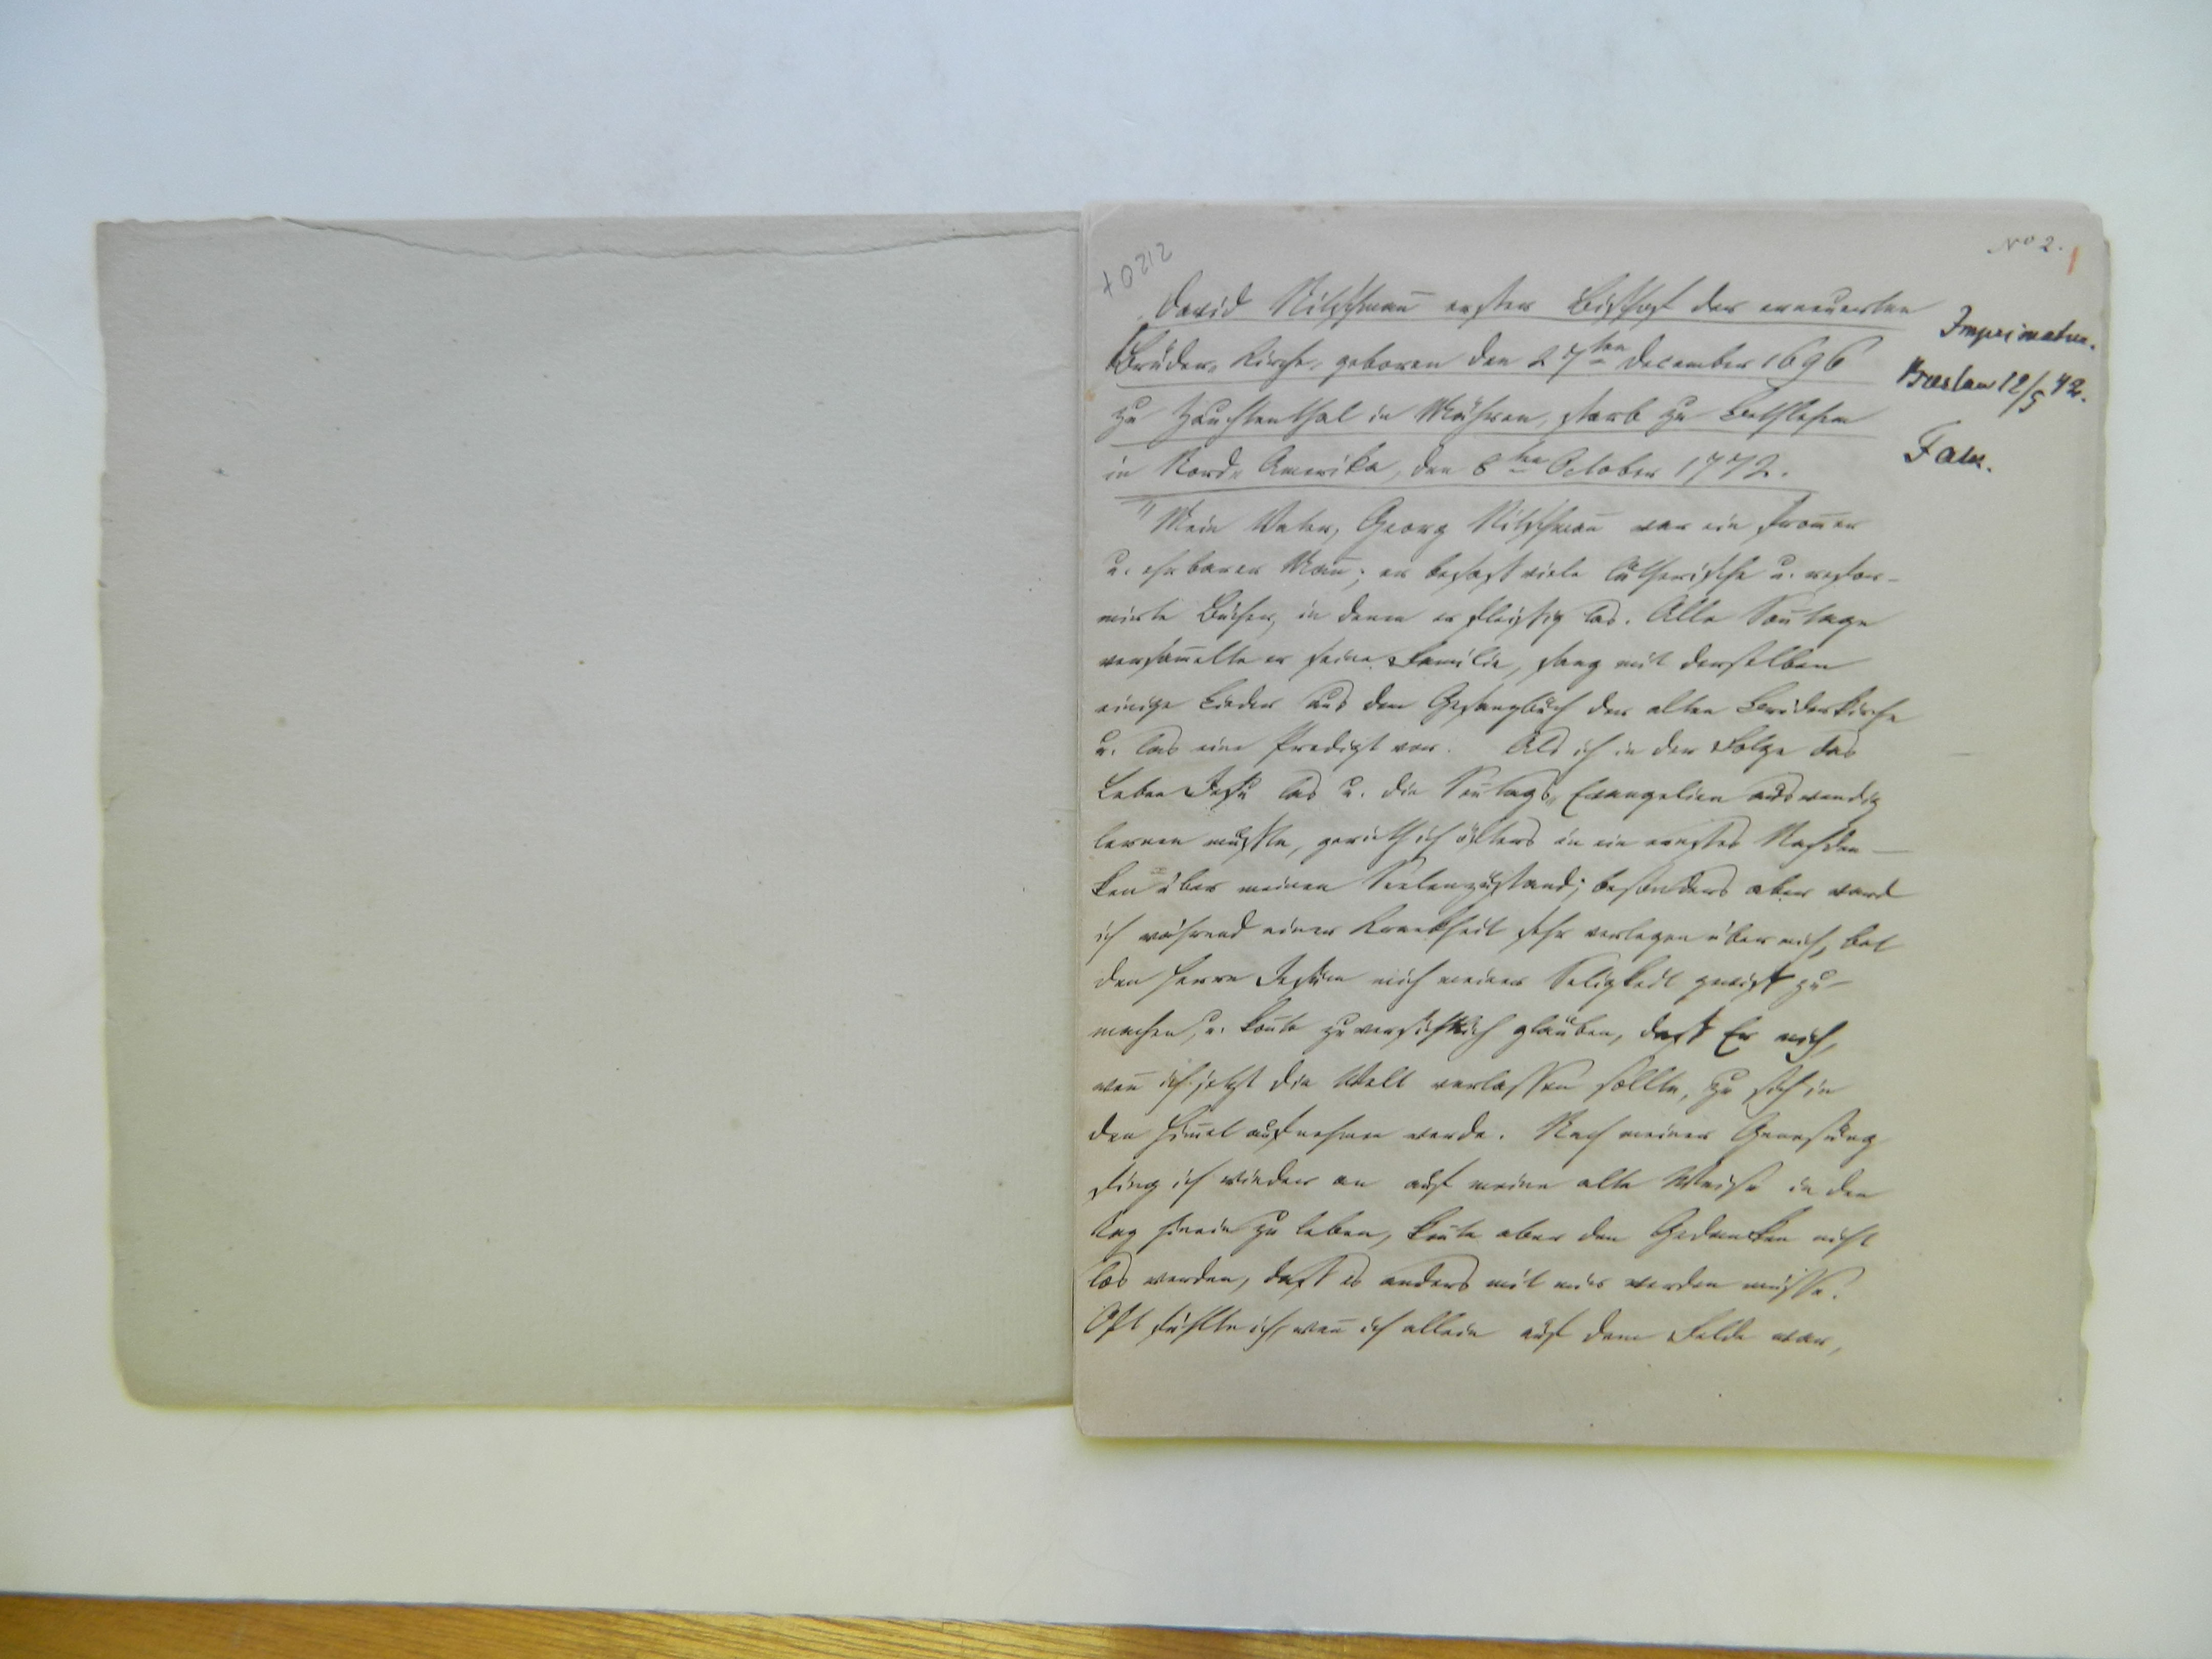 No 2. 1
+0212
David Nitschmañ erster Bischof der erneuerten
Brüder-Kirche, geboren den 27ten December 1696
zu Zauchtenthal in Mähren, starb zu Bethlehem
in Nord-Amerika, den 8ten October 1772.
Imprimatur.
Breslau 12/5 42.
Falk.
"Mein Vater, Georg Nitschmañ war ein from̄er
u. ehrbarer Mañ; er besaß viele lutherische u. refor-
mirte Bücher, in denen er fleißig las. Alle Son̄tage
versam̄elte er seine Familie, sang mit derselben
einige Lieder aus dem Gesangbuch der alten Brüderkirche
u. las eine Predigt vor. Als ich in der Folge das
Leben Jesu las u. die Son̄tags-Evangelien auswendig
lernen mußte, gerieth ich öfters in ein ernstes Nachden-
ken über meinen Seelenzustand; besonders aber ward
ich während einer Krankheit sehr verlegen über mich, bat
den Herrn Jesum mich meiner Seligkeit gewiß zu
machen, u. kon̄te zuversichtlich glauben, daß Er mich,
weñ ich jetzt die Welt verlassen sollte, zu sich in
den Him̄el aufnehmen werde. Nach meiner Genesung
fing ich wieder an auf meine alte Weise in den
Tag hinein zu leben, kon̄te aber den Gedanken nicht
los werden, daß es anders mit mir werden müsse.
Oft fühlte ich, weñ ich allein auf dem Felde war,